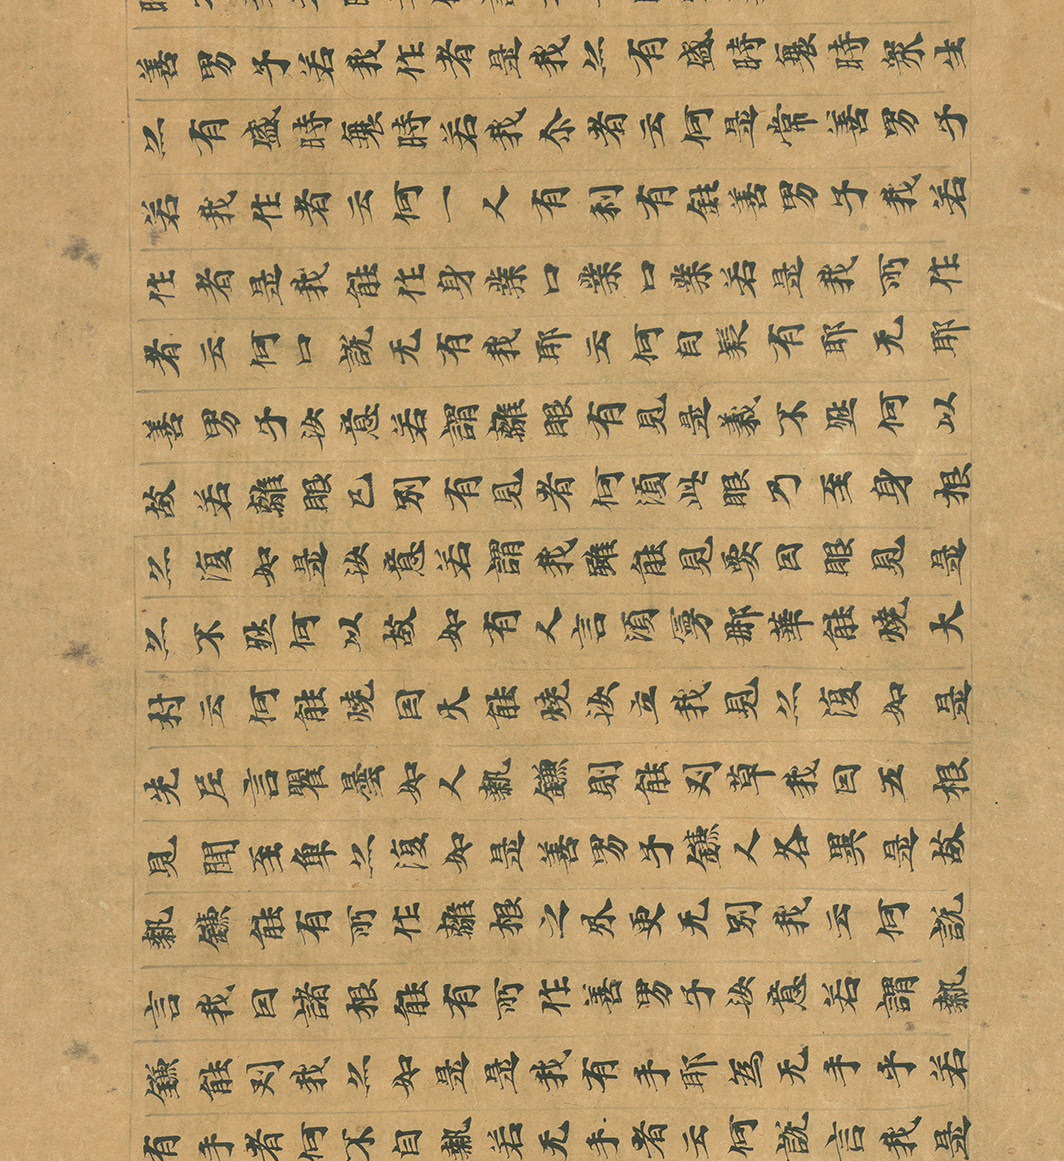 善男子若我作者是我亦有盛時衰時衆生
亦有盛時衰時若我尒者云何是常善男子
若我作者云何一人有利有鈍善男子我若
作者是我能作身業口業口業若是我所作
者云何口説无有我耶云何自疑有耶无耶
善男子汝意若謂離眼有見是義不然何以
故若離眼已別有見者何須此眼乃至身根
亦復如是汝意若謂我雖能見要因眼見是
亦不然何以故如有人言須曼那華能燒大
村云何能燒因火能燒汝立我見亦復如是
先尼言瞿曇如人執鎌則能刈草我因五根
見聞至亦復如是善男子鎌人各異是故
執鎌能有所作離根之外更无別我云何説
言我因諸根能有所作善男子汝意若謂執
鎌能刈我亦如是是我有手耶為无手乎若
有手者何不自執若无手者云何説言我是